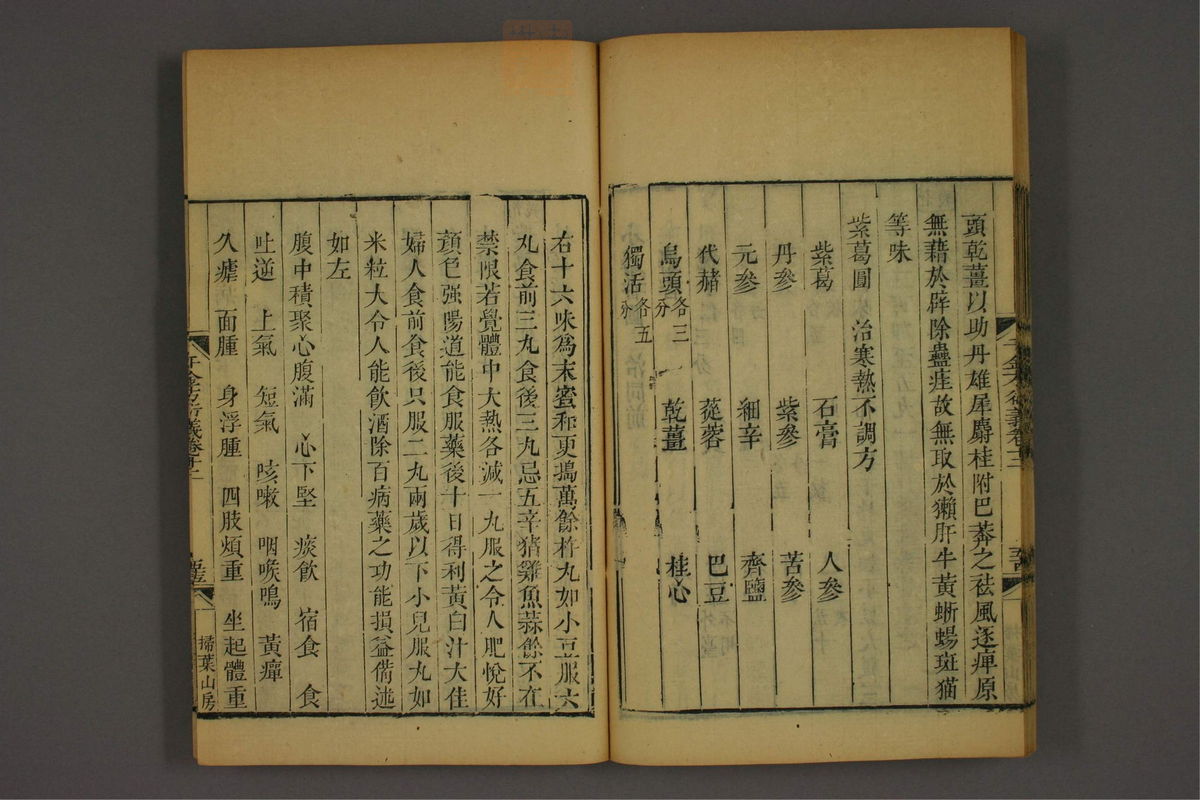 頭乾薑以助丹雄犀麝桂附巴莽之祛風逐痺原
無藉於辟除蠱疰故無取於獺肝牛黃蜥蜴斑猫
等味
紫葛圓　治寒熱不調方
紫葛　石膏　人參
丹參　紫參　苦參
元參　細辛　齊鹽
代赭　蓯蓉　巴豆
烏頭各三分　乾薑　桂心
獨活各五分
右十六味為末蜜和更搗萬餘杵丸如小豆服六
丸食前三丸食後三丸忌五辛猪雞魚蒜餘不在
禁限若覺體中大熱各減一丸服之令人肥悅好
顏色强陽道能食服藥後十日得利黃白汁大佳
婦人食前食後只服二丸兩歲以下小兒服丸如
米粒大令人能飲酒除百病藥之功能損益備述
如左
腹中積聚心腹滿　心下堅　痰飲　宿食　食
吐逆　上氣　短氣　咳嗽　咽喉鳴　黃癉
久瘧　面腫　身浮腫　四肢煩重　坐起體重
千金方衍義卷十二
掃葉山房